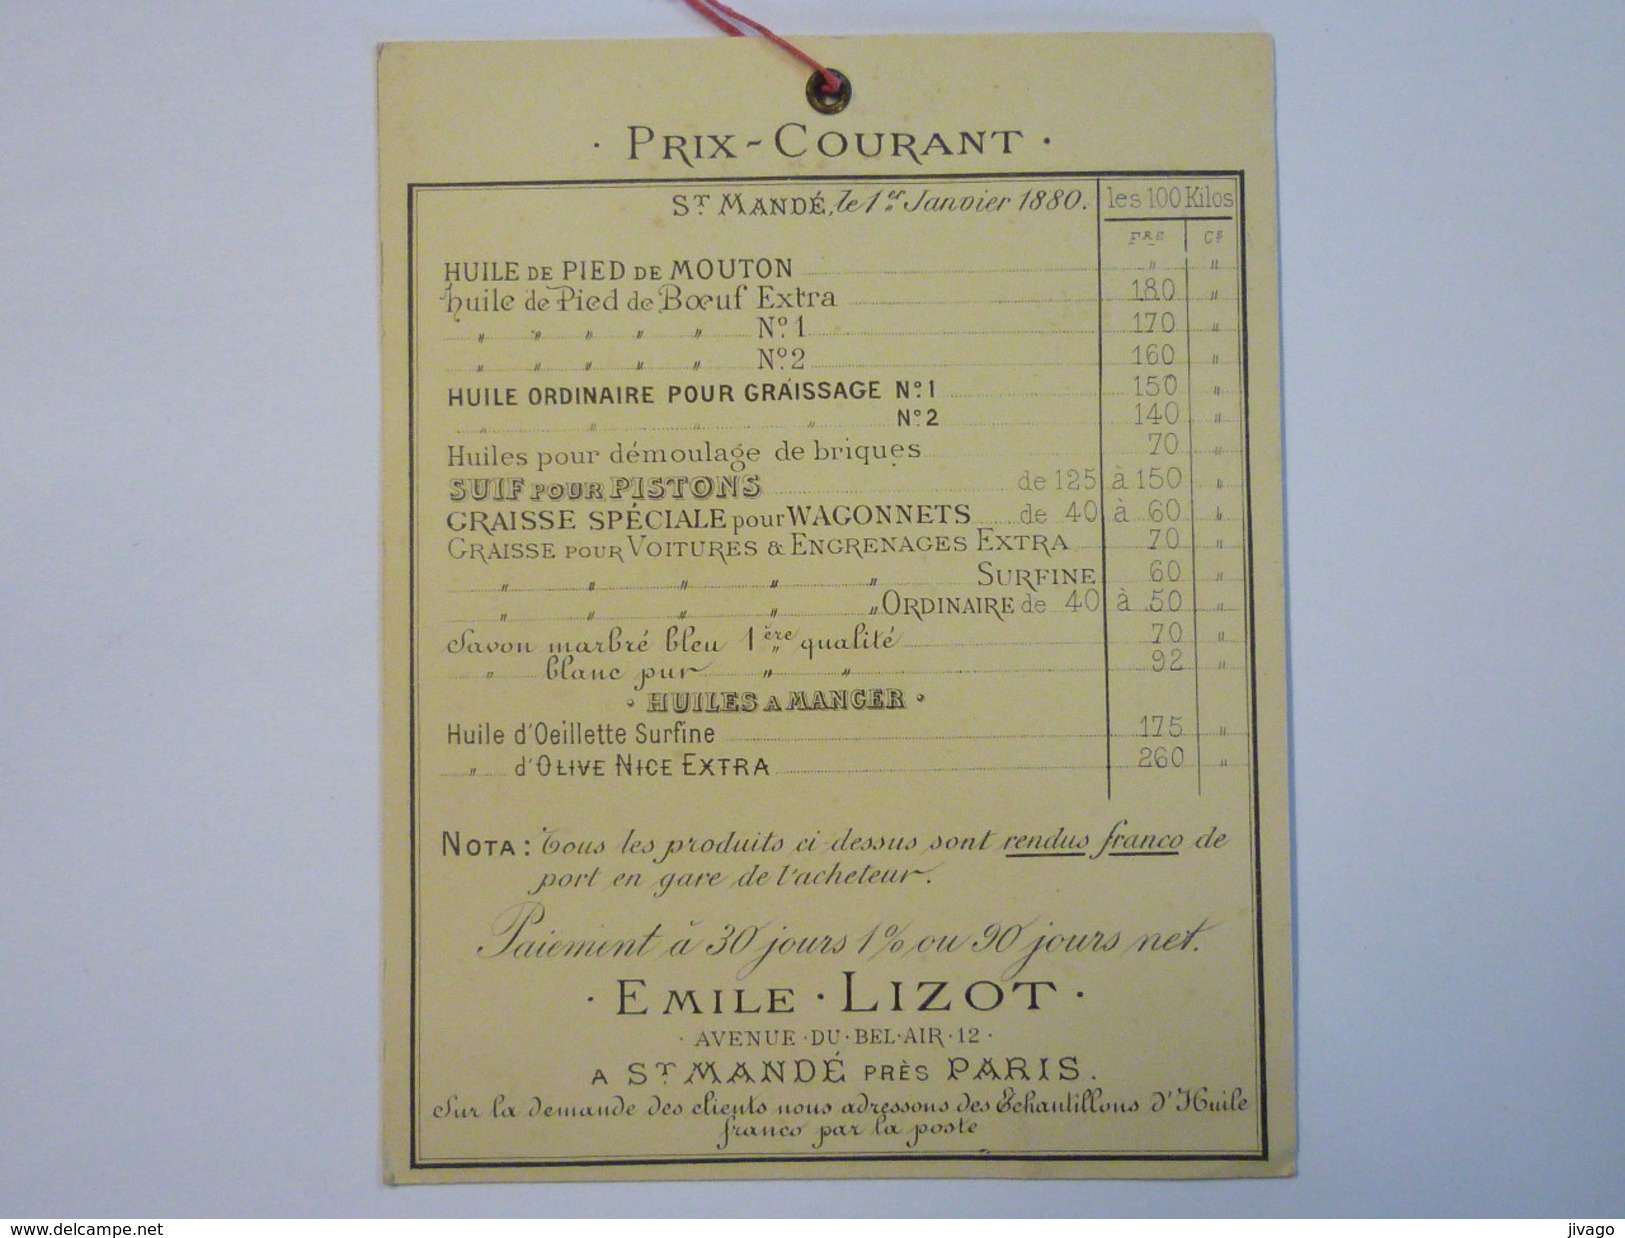 · PRIX - COURANT ·
ST MANDÉ, le 1er Janvier 1880. les 100 Kilos
FRS CS
HUILE DE PIED DE MOUTON " "
Huile de Pied de Bœuf Extra 180 "
" " " " " No. 1 170 "
" " " " " No. 2 160 "
HUILE ORDINAIRE POUR GRAISSAGE No. 1 150 "
" " " " No. 2 140 "
Huiles pour démoulage de briques 70 "
SUIF POUR PISTONS de 125 à 150 "
GRAISSE SPÉCIALE pour WAGONNETS de 40 à 60 "
GRAISSE POUR VOITURES & ENGRENAGES EXTRA 70 "
" " " " " SURFINE 60 "
" " " " " ORDINAIRE de 40 à 50 "
Savon marbré bleu 1ère qualité 70 "
" blanc pur " " 92 "
· HUILES A MANGER ·
Huile d'Oeillette Surfine 175 "
" d'OLIVE NICE EXTRA 260 "
NOTA : Tous les produits ci-dessus sont rendus franco de
port en gare de l'acheteur.
Paiement à 30 jours 1% ou 90 jours net.
· EMILE · LIZOT ·
· AVENUE · DU · BEL · AIR · 12 ·
A ST MANDÉ PRÈS PARIS.
Sur la demande des clients nous adressons des Echantillons d'Huile
franco par la poste
www.delcampe.net jivago